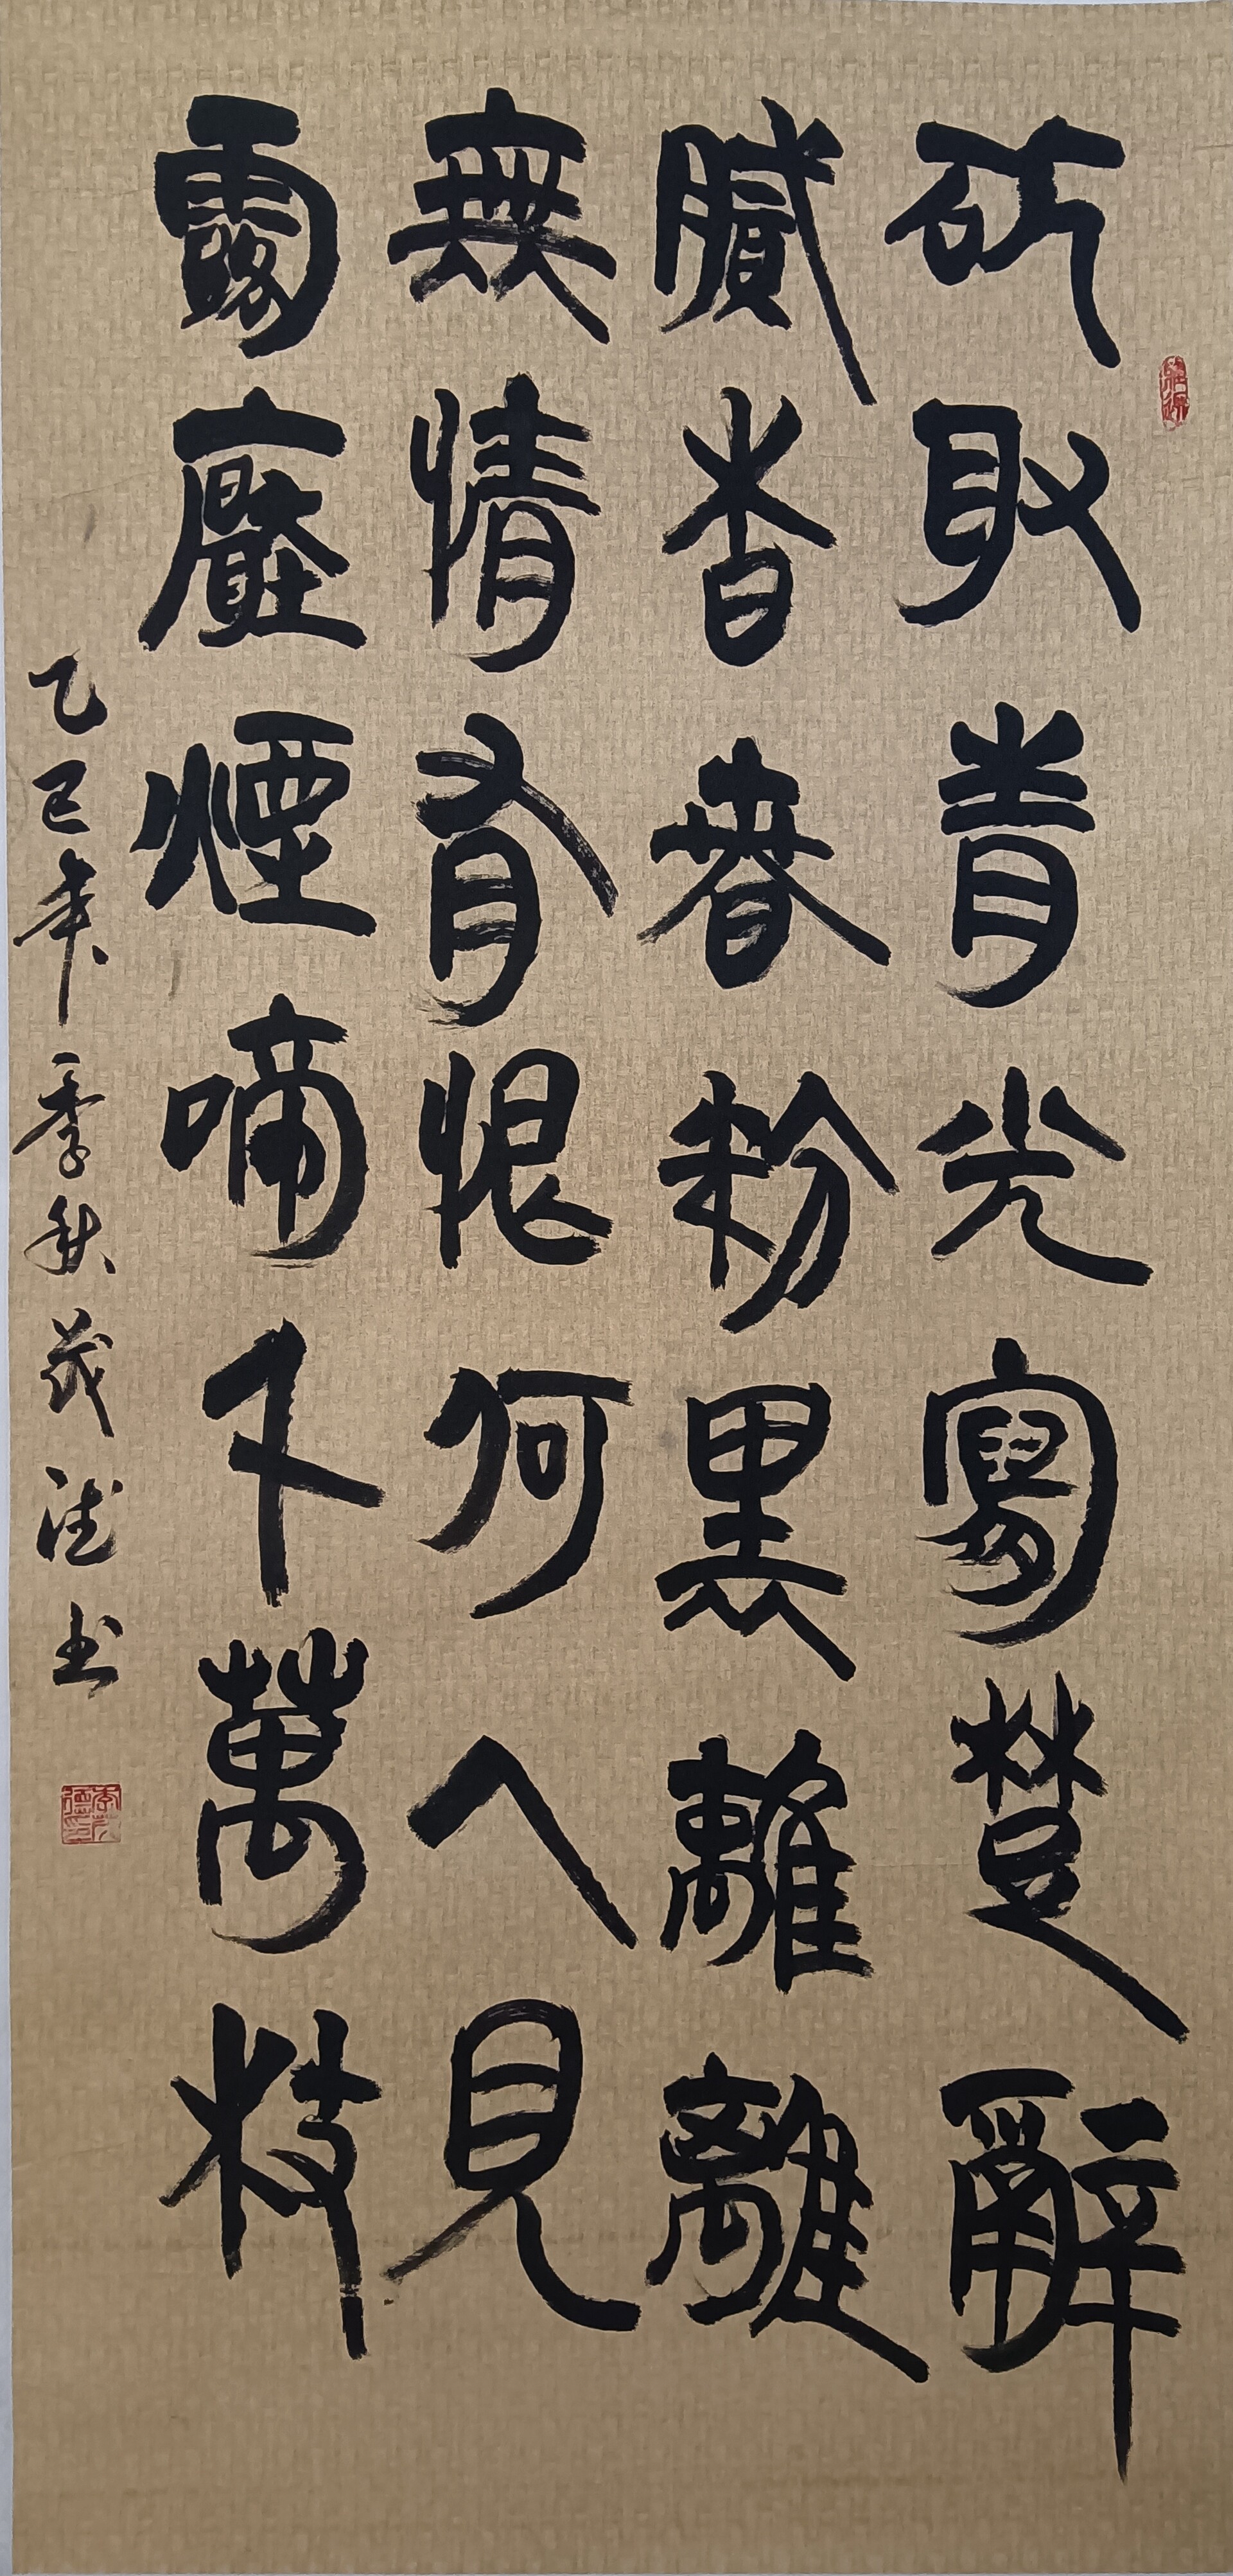 斫取青光寫楚辭
膩香春粉黑離離
無情有恨何人見
露壓煙啼千萬枝
乙巳年季秋茂德书